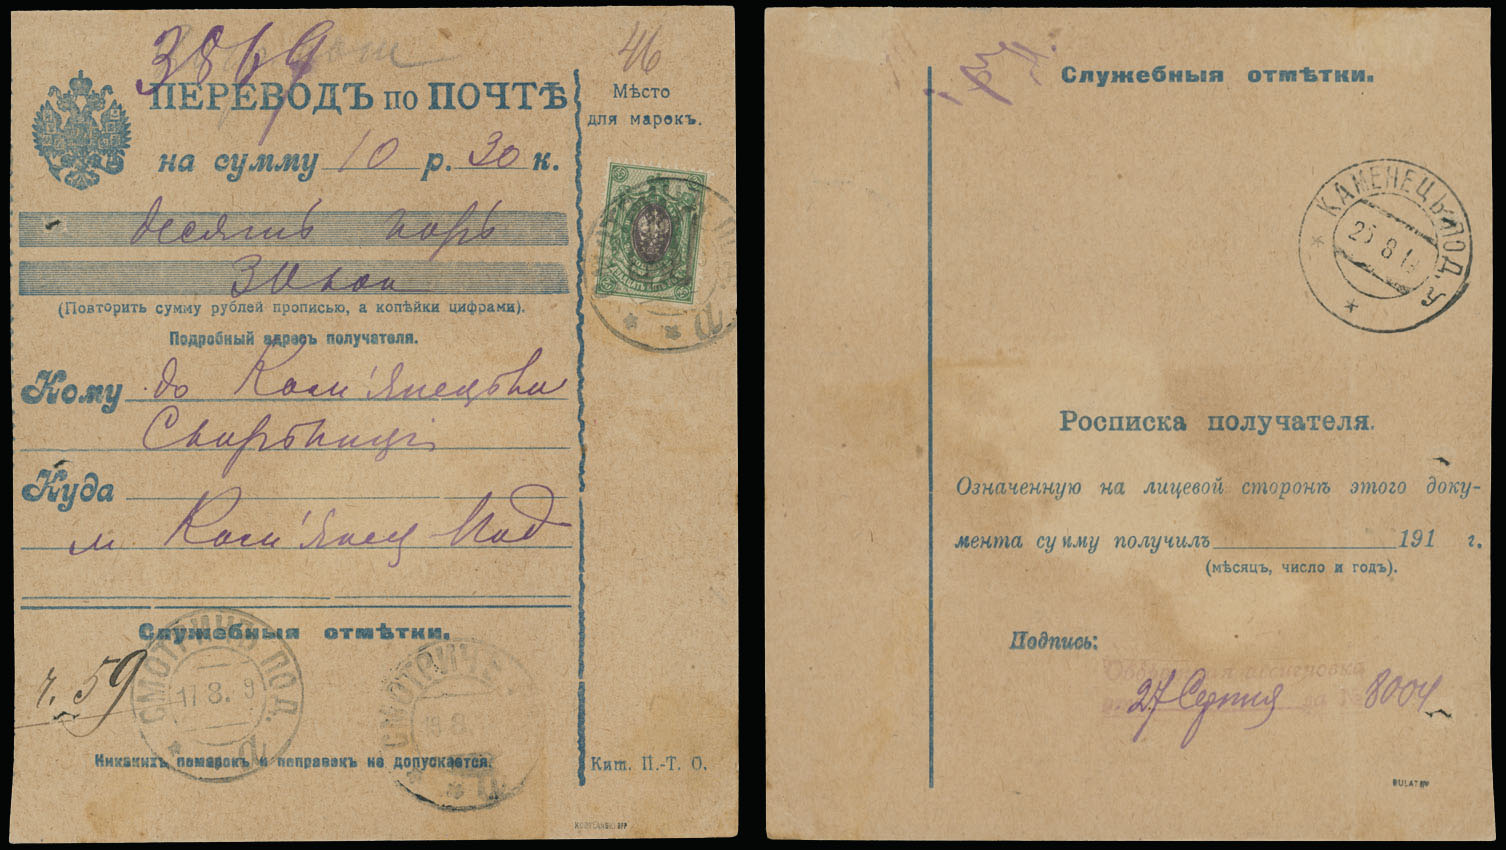 3869
46
ПЕРЕВОДЪ по ПОЧТѢ
на сумму 10 р. 30 к.
десять карб
30 коп
(Повторить сумму рублей прописью, а копѣйки цифрами).
Подробный адресъ получателя.
Кому до Кам'янецької
Скарбниці
Куда
м. Кам'янец Под
Служебныя отмѣтки.
ч. 59
СМОТРИЧЪ ПОД.
17 8. 9
а
СМОТРИЧЪ
19 8.
а
Никакихъ помарокъ и поправокъ не допускается.
Мѣсто
для марокъ.
а
Киш. П.-Т. О.
Служебныя отмѣтки.
КАМЕНЕЦЪ ПОД. Ъ
25 8 19
Росписка получателя.
Означенную на лицевой сторонѣ этого доку-
мента сумму получилъ 191 г.
(мѣсяцъ, число и годъ).
Подпись:
27 Серпня за № 8004
BULAT